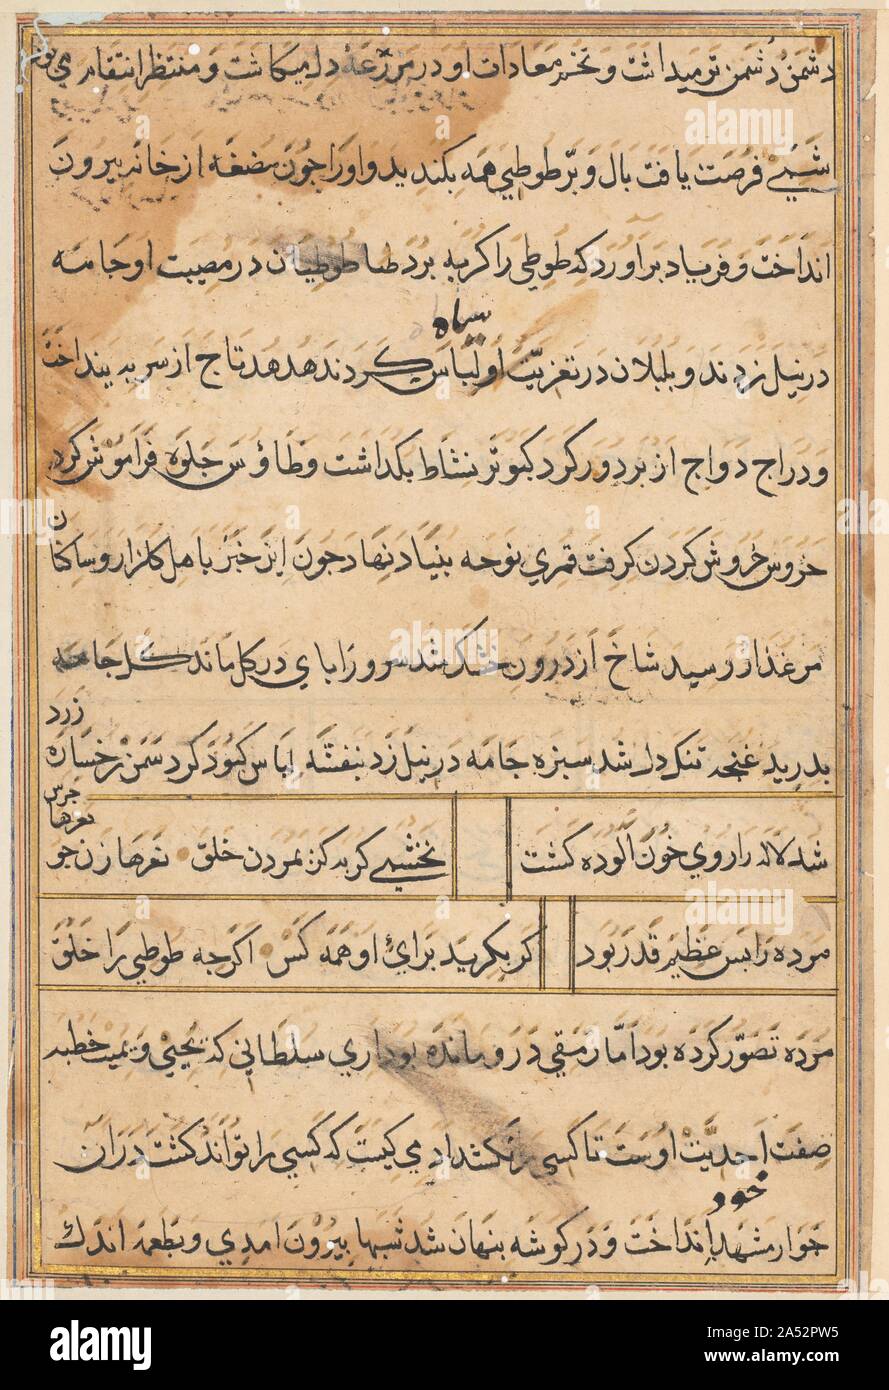 دشمن دشمن تر میداشت و تخم معادات او در مزرعهٔ دل میکاشت و منتظر انتقام می بود
شبی فرصت یافت بال و پر طوطی همه بکندید و او را چون مضغه از خانه بیرون
انداخت و فریاد برآورد که طوطی را گربه برد طوطیان در مصیبت او جامه
در نیل زدند و بلبلان در تعزیت او لباس سیاه کردند هدهد تاج از سر بینداخت
و دراج دواج از بر دور کرد کبوتر نشاط بگذاشت و طاؤس جلوه فراموش کرد
خروس خروش کردن گرفت قمری نوحه بنیاد نهاد چون این خبر باهل گلزار و ساکنان
مرغذار رسید شاخ از درون خشک شد سرو را پای در گل ماند گل جامه
بدرید غنچه تنگ دل شد سبزه جامه در نیل زد بنفشه لباس کبود کرد سمن رخساره زرد
شد لاله را روی خون آلوده گشت نخشبی گریه کن بمردن خلق نعرها زن چو جرس نعرها
مرده را بس عظیم قدر بود گر بگرید برای او همه کس اگرچه طوطی را خلق
مرده تصور کرده بود اما رمقی درو مانده بود آری سلطانی که یحیی و یمیت خطبه
صفت احدیت اوست تا کسی را نکشد آدمی کیست که کسی را تواند کشت در آن
جوار مشهد خود انداخت و در گوشه پنهان شد شبها بیرون آمدی و بطعمه اندک
alamy
Image ID: 2A52PW5
www.alamy.com